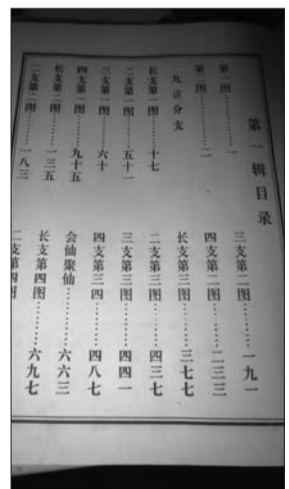 第一辑目录
第一图………一
第二图………二
九江分支
长支第一图………十七
二支第一图………五十一
三支第一图………六十
四支第一图………九十五
长支第二图………一三五
二支第二图………一八三
三支第二图………一九一
四支第二图………二三三
长支第三图………三七七
二支第三图………四三七
三支第三图………四四一
四支第三四………四八七
会仙聚仙………六六三
长支第四图………六九七
二支第四图